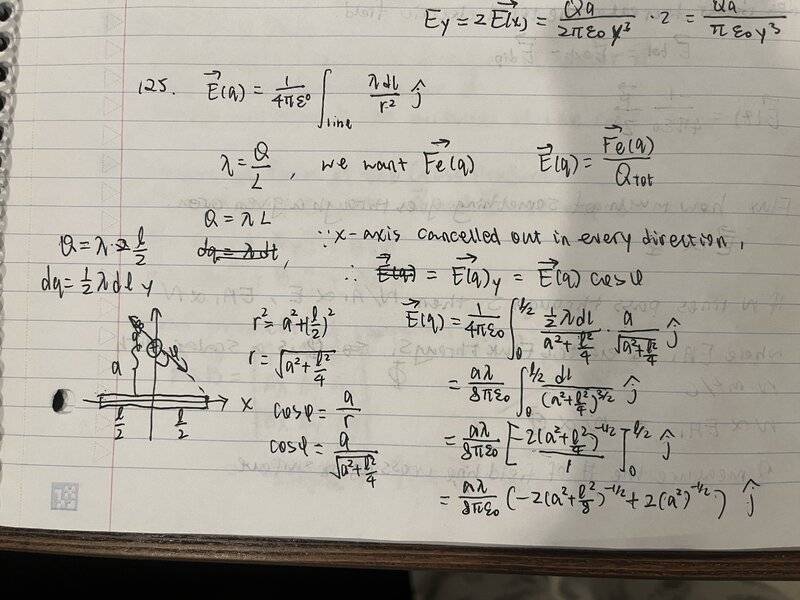 E_y = 2 \vec{E}(x) = \frac{Qa}{2\pi\varepsilon_0 y^3} \cdot 2 = \frac{Qa}{\pi\varepsilon_0 y^3}
125. \vec{E}(q) = \frac{1}{4\pi\varepsilon_0} \int_{line} \frac{\lambda dl}{r^2} \hat{j}
\lambda = \frac{Q}{L}, we want \vec{Fe}(q) \vec{E}(q) = \frac{\vec{Fe}(q)}{Q_{tot}}
Q = \lambda L
Q = \lambda \cdot \frac{l}{2}
dq = \lambda dt, ∵ x-axis cancelled out in every direction,
dq = \frac{1}{2} \lambda dl
∴ \vec{E}(q) = \vec{E}(q)_y = \vec{E}(q) cos φ
y
a
φ
x
\frac{l}{2} \frac{l}{2}
r^2 = a^2 + (\frac{l}{2})^2
r = \sqrt{a^2 + \frac{l^2}{4}}
cos φ = \frac{a}{r}
cos φ = \frac{a}{\sqrt{a^2 + \frac{l^2}{4}}}
\vec{E}(q) = \frac{1}{4\pi\varepsilon_0} \int_0^{l/2} \frac{\frac{1}{2} \lambda dl}{a^2 + \frac{l^2}{4}} \cdot \frac{a}{\sqrt{a^2 + \frac{l^2}{4}}} \hat{j}
= \frac{a\lambda}{8\pi\varepsilon_0} \int_0^{l/2} \frac{dl}{(a^2 + \frac{l^2}{4})^{3/2}} \hat{j}
= \frac{a\lambda}{8\pi\varepsilon_0} [\frac{-2(a^2 + \frac{l^2}{4})^{-1/2}}{1}]_0^{l/2} \hat{j}
= \frac{a\lambda}{8\pi\varepsilon_0} (-2(a^2 + \frac{l^2}{8})^{-1/2} + 2(a^2)^{-1/2}) \hat{j}